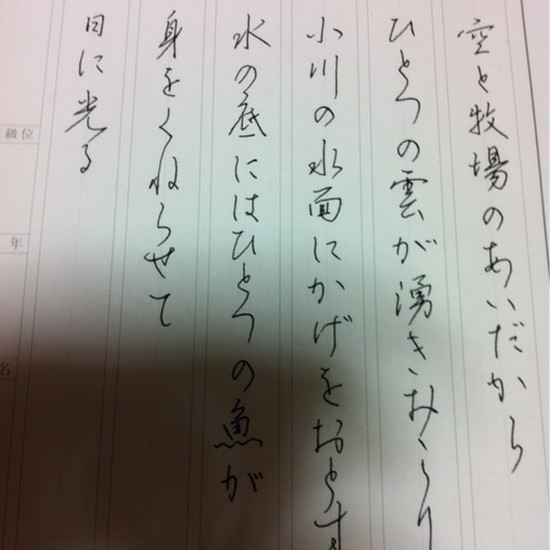 空と牧場のあいだから
ひとつの雲が湧きおこり
小川の水面にかげをおとす
水の底にはひとつの魚が
身をくねらせて
日に光る
級位
年
名